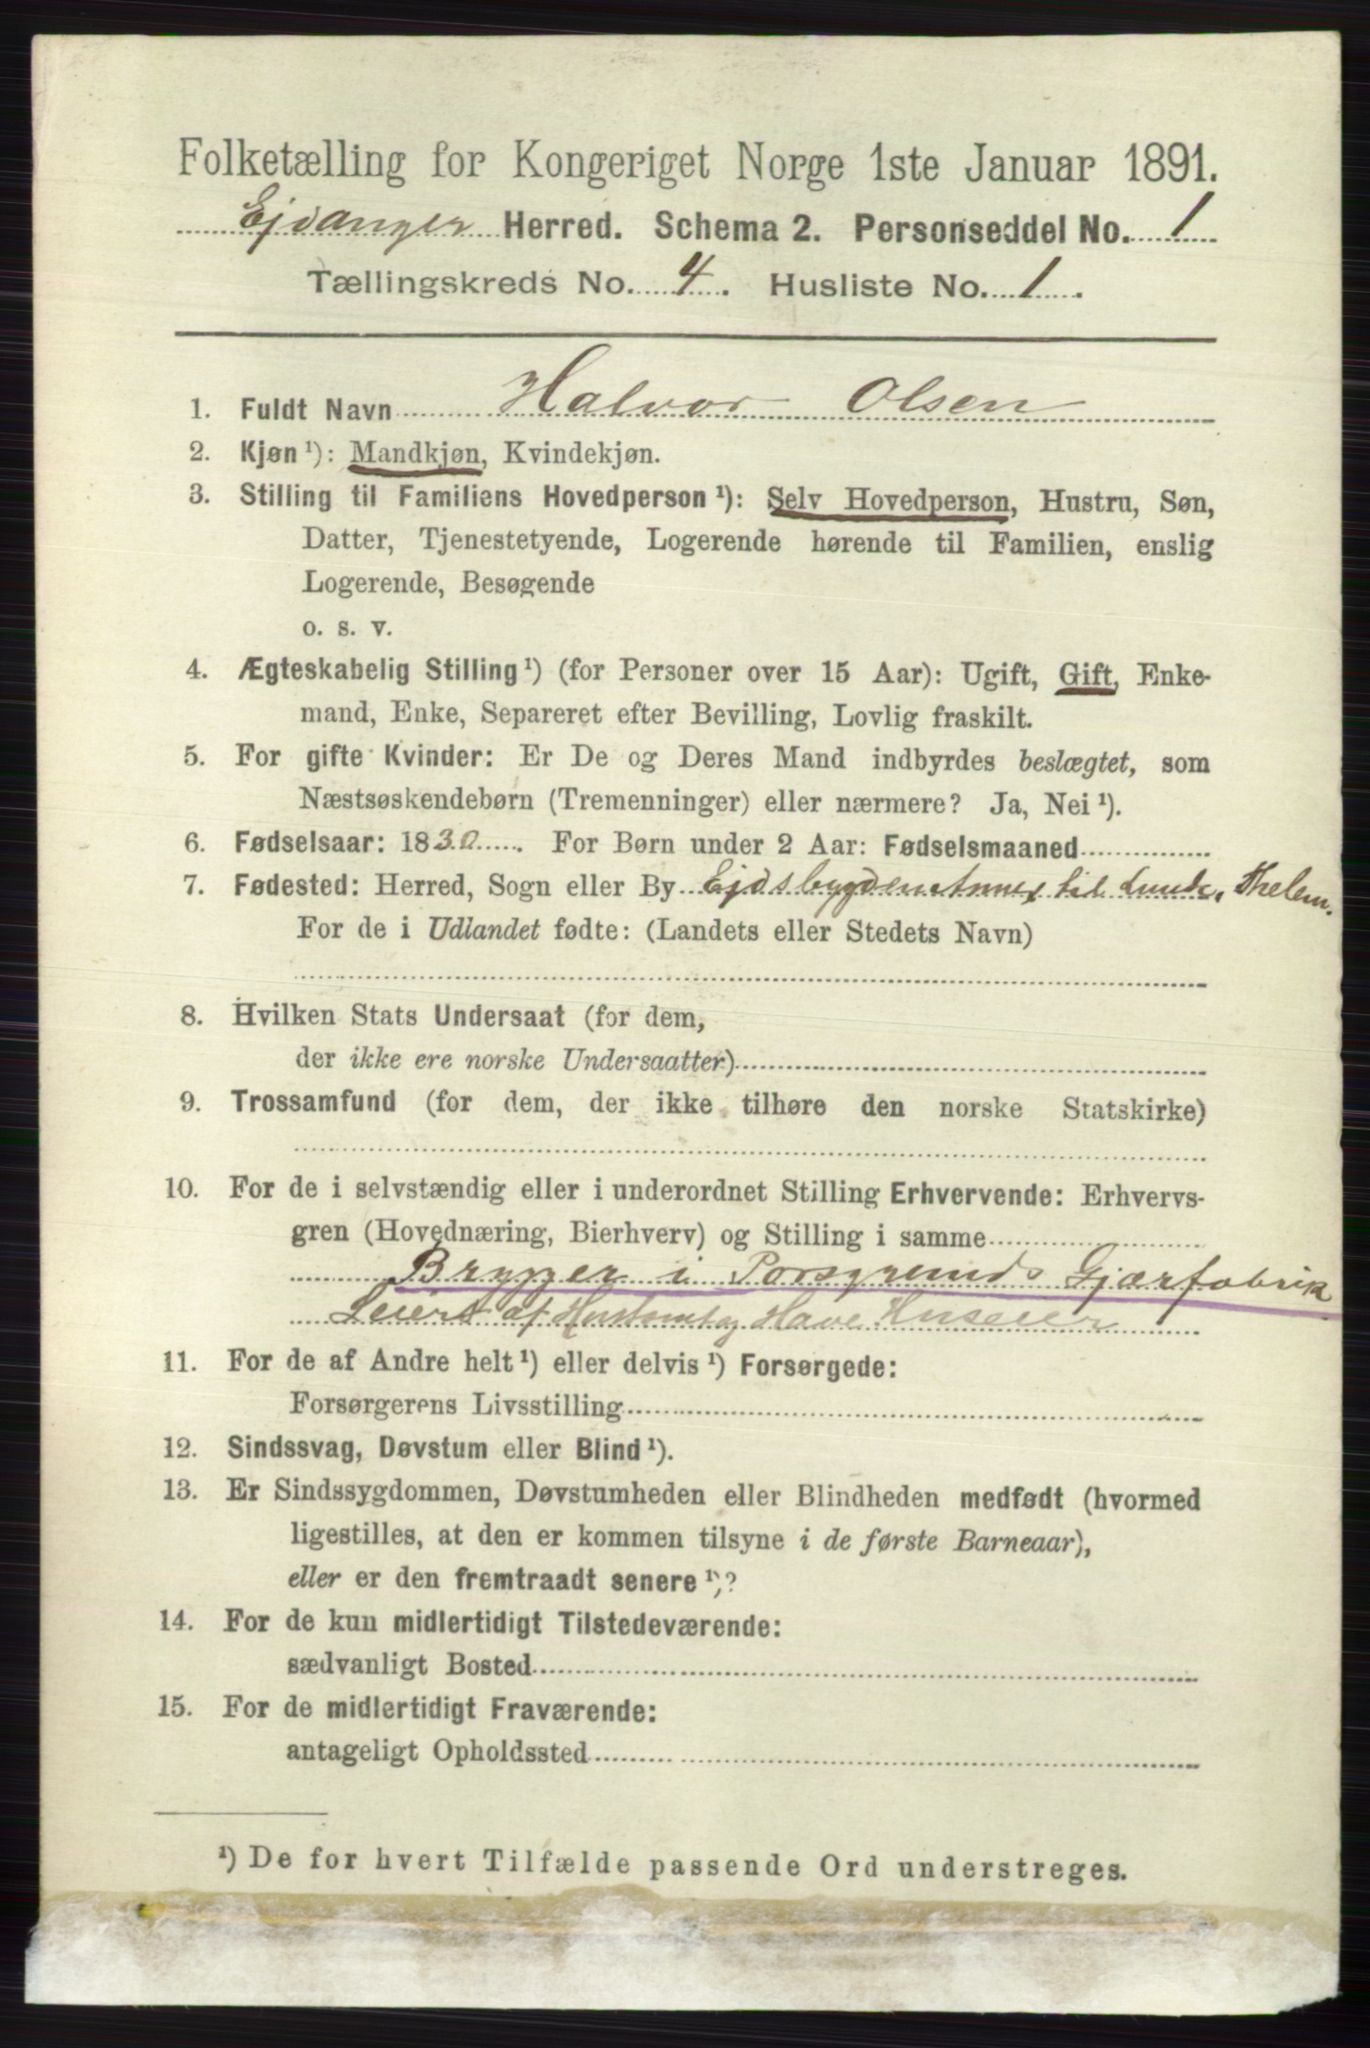 Folketælling for Kongeriget Norge 1ste Januar 1891.
Ejdanger Herred. Schema 2. Personseddel No. 1
Tællingskreds No. 4. Husliste No. 1.
1. Fuldt Navn Halvor Olsen
2. Kjøn ¹): Mandkjøn, Kvindekjøn.
3. Stilling til Familiens Hovedperson ¹): Selv Hovedperson, Hustru, Søn,
Datter, Tjenestetyende, Logerende hørende til Familien, enslig
Logerende, Besøgende
o. s. v.
4. Ægteskabelig Stilling ¹) (for Personer over 15 Aar): Ugift, Gift, Enke-
mand, Enke, Separeret efter Bevilling, Lovlig fraskilt.
5. For gifte Kvinder: Er De og Deres Mand indbyrdes beslægtet, som
Næstsøskendebørn (Tremenninger) eller nærmere? Ja, Nei ¹).
6. Fødselsaar: 1830. For Børn under 2 Aar: Fødselsmaaned
7. Fødested: Herred, Sogn eller By Ejdsbygden Annex til Lunde, Thelem.
For de i Udlandet fødte: (Landets eller Stedets Navn)
8. Hvilken Stats Undersaat (for dem,
der ikke ere norske Undersaatter)
9. Trossamfund (for dem, der ikke tilhøre den norske Statskirke)
10. For de i selvstændig eller i underordnet Stilling Erhvervende: Erhvervs-
gren (Hovednæring, Bierhverv) og Stilling i samme
Brygger i Porsgrunds Gjærfabrik
af Have Huseier
11. For de af Andre helt ¹) eller delvis ¹) Forsørgede:
Forsørgerens Livsstilling
12. Sindssvag, Døvstum eller Blind ¹).
13. Er Sindssygdommen, Døvstumheden eller Blindheden medfødt (hvormed
ligestilles, at den er kommen tilsyne i de første Barneaar),
eller er den fremtraadt senere ¹)?
14. For de kun midlertidigt Tilstedeværende:
sædvanligt Bosted
15. For de midlertidigt Fraværende:
antageligt Opholdssted
¹) De for hvert Tilfælde passende Ord understreges.